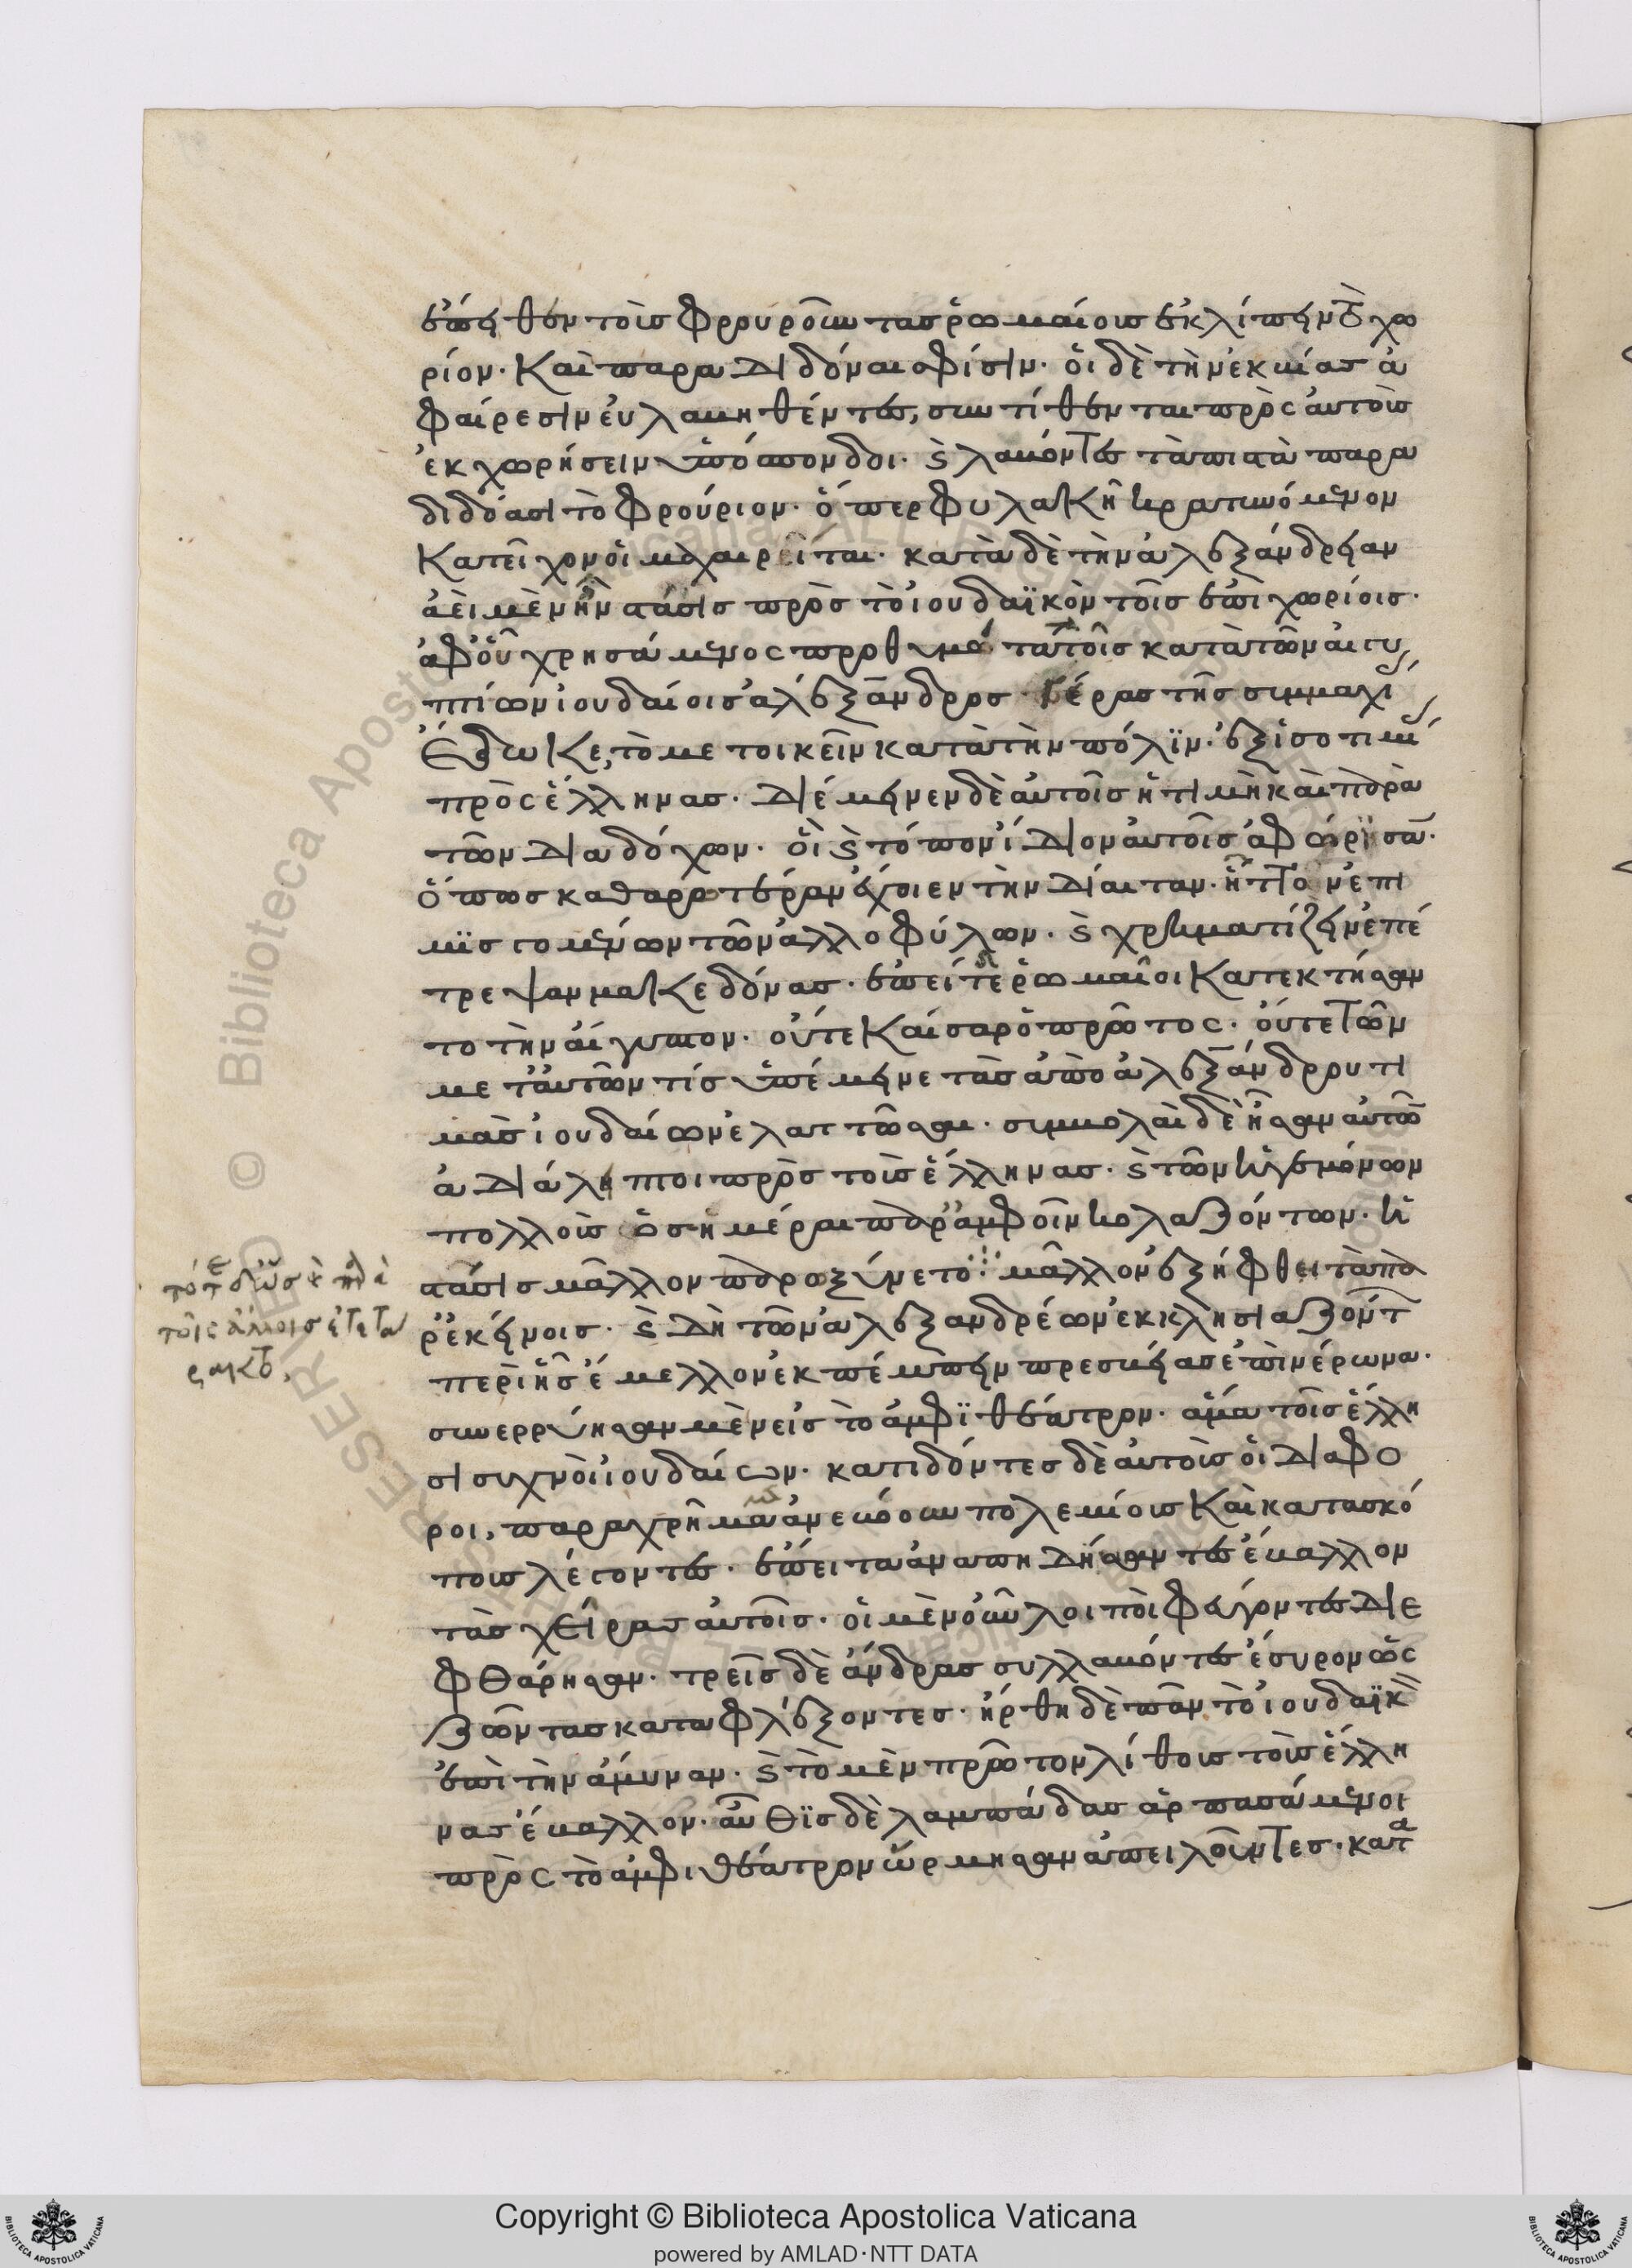 ἔπειθεν τοὺς φρουροῦντας ῥωμαίους ἐκλιπεῖν τὸ χω
ρίον· καὶ παραδιδόναι σφίσιν· οἱ δὲ τὴν ἐκ βίας ἀ
φαίρεσιν εὐλαβηθέντες, συντίθενται πρὸς αὐτοὺς
ἐκχωρήσειν ὑπόσπονδοι· καὶ λαβόντες τὰ πιστὰ παρα
διδόασι τὸ φρούριον· ὅπερ φυλακῇ κρατυνόμενον
κατεῖχον οἱ μαχαιρεῖται· κατὰ δὲ τὴν ἀλεξάνδρειαν
ἀεὶ μὲν ἦν στάσις πρὸς τὸ ἰουδαϊκὸν τοῖς ἐπιχωρίοις·
ἀφ' οὗ χρησάμενος προθυμοτάτοις κατὰ τῶν αἰγυ
πτίων ἰουδαίοις ἀλέξανδρος· γέρας τῆς συμμαχί
ἔδωκε, τὸ μετοικεῖν κατὰ τὴν πόλϊν· ἐξ ἰσοτιμί
πρὸς ἕλληνας· διέμεινεν δὲ αὐτοῖς ἡ τιμὴ καὶ παρὰ
τῶν διαδόχων· οἳ καὶ τόπον ἴδιον αὐτοῖς ἀφώρϊσαν·
ὅπως καθαρωτέραν ἔχοιεν τὴν δίαιταν· ἧττον ἐπι
μϊσγομένων τῶν ἀλλοφύλων· καὶ χρηματίζειν ἐπέ
τρεψαν μακεδόνας· ἐπεί τε ῥωμαῖοι κατεκτήσαν
το τὴν αἴγυπτον· οὔτε καῖσαρ ὁ πρῶτος· οὔτε τῶν
μετ' αὐτῶν τίς ὑπέμεινε τὰς ἀπὸ ἀλεξάνδρου τι
μὰς ἰουδαίων ἐλαττῶσαι· συμβολαὶ δὲ ἦσαν αὐτῶν
ἀδιάληπτοι πρὸς τοὺς ἕλληνας· καὶ τῶν ἡγεμόνων
πολλοὺς ὁσημέραι παρ' ἀμφοῖν κολαζόντων· ἡ
στάσις μᾶλλον παρωξύνετο· μᾶλλον ἐξήφθει τὰ πα
ρ' ἐκείνοις· καὶ δὴ τῶν ἀλεξανδρέων ἐκκλησιαζόντ
περὶ ἧς ἔμελλον ἐκπέμπειν πρεσβείας ἐπὶ νέρωνα·
συνερρύησαν μὲν εἰς τὸ ἀμφϊθέατρον· ἅμα τοῖς ἕλλη
σι συχνοὶ ἰουδαίων· κατιδόντες δὲ αὐτοὺς οἱ διαφο
ροι, παραχρῆμα ἀνεβόουν πολεμίους καὶ κατασκό
πους λέγοντες· ἔπειτα ἀναπηδήσαντες ἔβαλλον
τὰς χεῖρας αὐτοῖς· οἱ μὲν οὖν λοιποὶ φεύγοντες διε
φθάρησαν· τρεῖς δὲ ἄνδρας συλλαβόντες ἔσυρον ὡς
ζῶντας καταφλέξοντες· ἤρθη δὲ πᾶν τὸ ἰουδαϊκὸν
ἐπὶ τὴν ἄμυναν· καὶ τὸ μὲν πρῶτον λίθοις τοὺς ἕλλη
νας ἔβαλλον· αὖθϊς δὲ λαμπάδας ἁρπασάμενοι
πρὸς τὸ ἀμφιθέατρον ὥρμησαν ἀπειλοῦντες· κατα
τοῖς ἄλλοις ἐτετά
ρακτο,